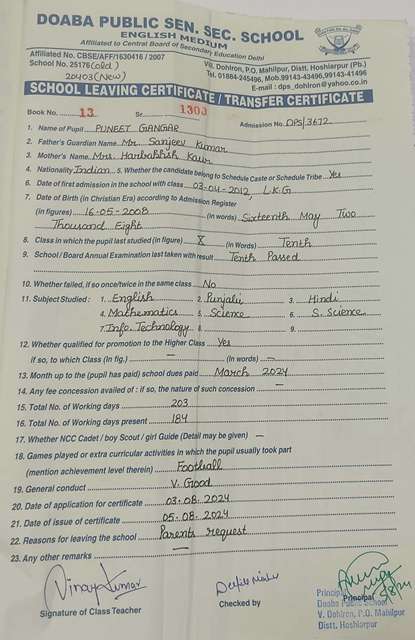 DOABA PUBLIC SEN. SEC. SCHOOL
ENGLISH MEDIUM
Affiliated to Central Board of Secondary Education Delhi
Affiliated No. CBSE/AFF/1630416 / 2007
School No. 25176 (old)
20403 (New)
Vil. Dohlron, P.O. Mahilpur,
Distt. Hoshiarpur (Pb.)
Tel. 01884-245496, Mob.99143-43496,99143-41496
E-mail : dps_dohlron@yahoo.co.in
SCHOOL LEAVING CERTIFICATE / TRANSFER CERTIFICATE
Book No. 13 Sr. 1303 Admission No. DPS/3672
1. Name of Pupil PUNEET GANGAR
2. Father's/Guardian Name Mr. Sanjeev Kumar
3. Mother's Name Mrs. Harbakhish Kaur
4. Nationality Indian 5. Whether the candidate belong to Schedule Caste or Schedule Tribe Yes
6. Date of first admission in the school with class 03-04-2012, L.K.G
7. Date of Birth (in Christian Era) according to Admission Register
(in figures) 16-05-2008 (in words) Sixteenth May Two
Thousand Eight
8. Class in which the pupil last studied (in figure) X (in Words) Tenth
9. School / Board Annual Examination last taken with result Tenth Passed
10. Whether failed, if so once/twice in the same class No
11. Subject Studied : 1. English 2. Punjabi 3. Hindi
4. Mathematics 5. Science 6. S. Science
7. Info. Technology 8. 9.
12. Whether qualified for promotion to the Higher Class Yes
if so, to which Class (In fig.) — (In words) —
13. Month up to the (pupil has paid) school dues paid March 2024
14. Any fee concession availed of : if so, the nature of such concession —
15. Total No. of Working days 203
16. Total No. of Working days present 184
17. Whether NCC Cadet / boy Scout / girl Guide (Detail may be given) —
18. Games played or extra curricular activities in which the pupil usually took part
(mention achievement level therein) Football
19. General conduct V. Good
20. Date of application for certificate 03.08.2024
21. Date of issue of certificate 05.08.2024
22. Reasons for leaving the school Parents request
23. Any other remarks —
Vinay Kumar
Signature of Class Teacher
Checked by
5/8/24
Principal
Principal
Doaba Public School
V. Dohlron, P.O. Mahilpur
Distt. Hoshiarpur